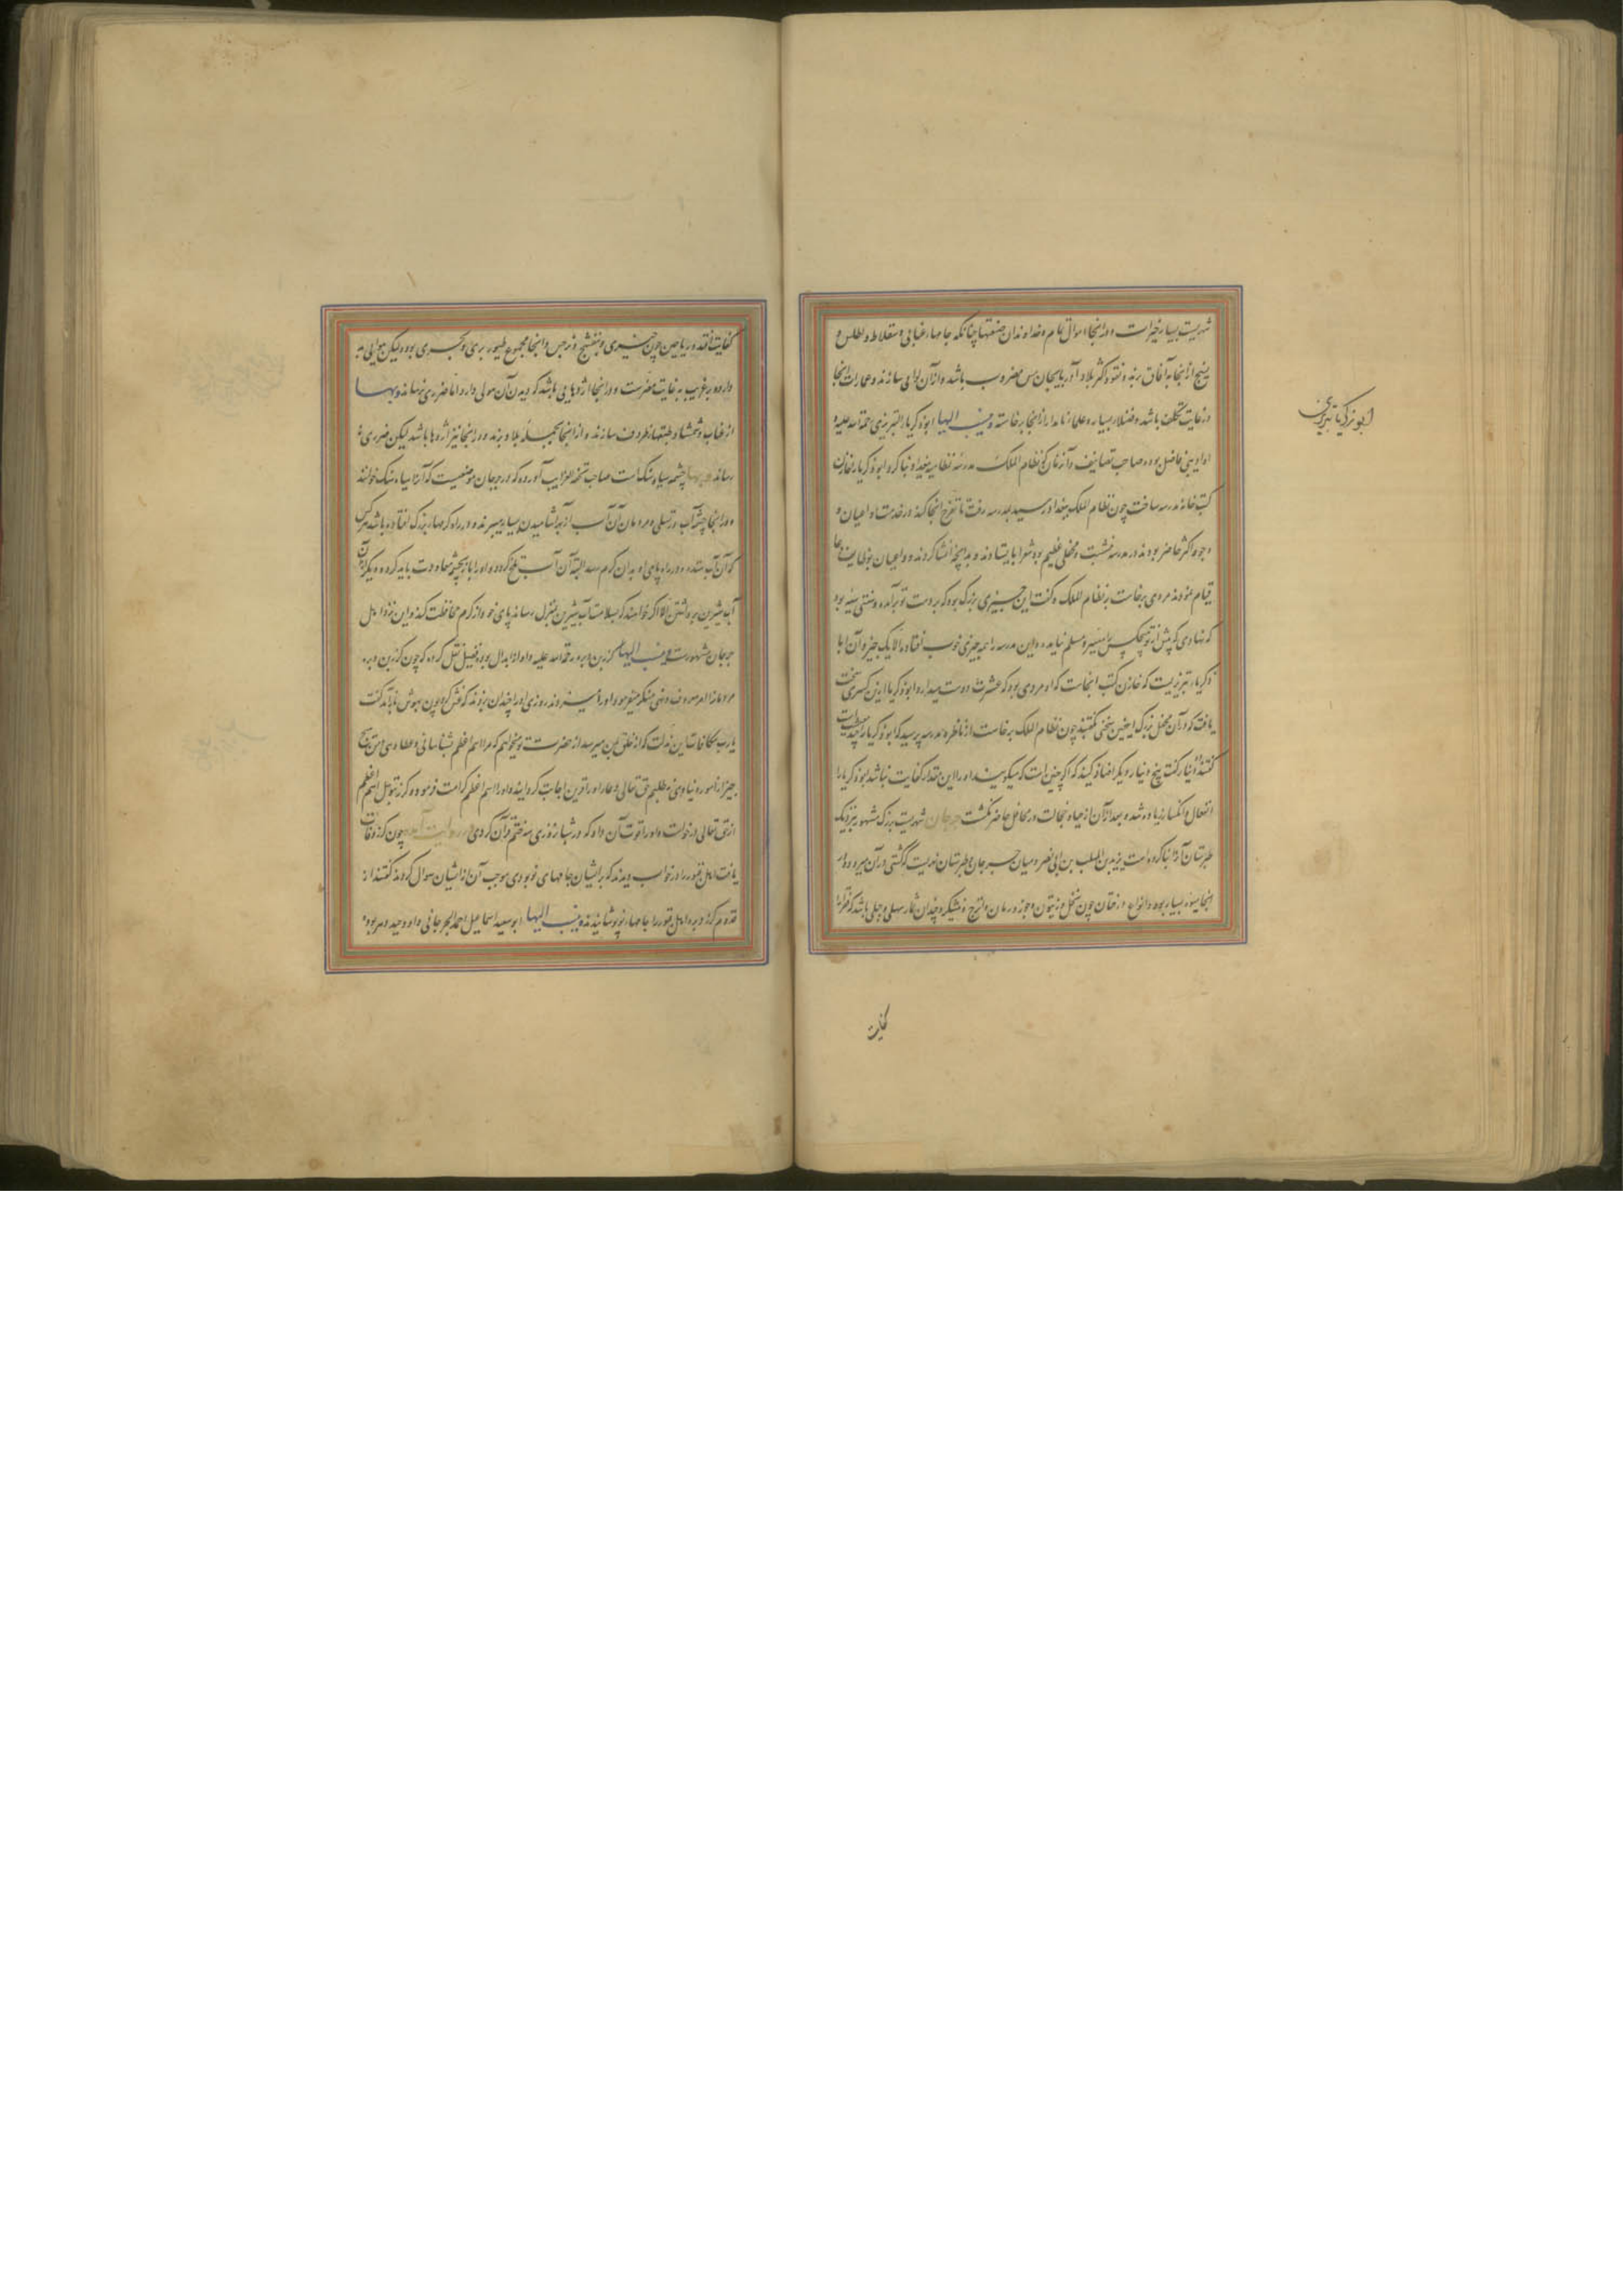 شهریست بسیار خیرات و در انجا اموال عام و خداوندان صنعتها چنانکه جامهاء عتابی و سقلاط و اطلس و
نسیج از انجا به آفاق برند و نقود اکثر بلاد آذربایجان مس مضروب باشد و از آن اوانی سازند و عمارت انجا
در غایت تکلف باشد و فضلاء بسیار و علماء نامدار از انجا برخاسته وینسب الیها ابوزکریاء التبریزی رحمة الله علیه
او ادیبی فاضل بوده صاحب تصانیف و آن زمان که نظام الملک مدرسه نظامیه ببغداد بنا کرد ابوزکریا را خازن
کتب خانه مدرسه ساخت چون نظام الملک ببغداد رسید بمدرسه رفت تا تفرج انجا کند در خدمت او اعیان و
وجوه اکثر حاضر بودند در مدرسه بنشست و محفلی عظیم بود شعرا بایستادند و مدایحها انشا کردند و داعیان بوظایف دعا
قیام نمودند مردی برخاست و نظام الملک را گفت این چیزی بزرگ بود که بر دست تو برآمد و سنتی سنیه بود
که نهادی که پیش از تو هیچکس را میسر و مسلم نیامد و این مدرسه را همه چیزی خوب افتاده الا یک چیز و آن ابا
زکریاء تبریزیست که خازن کتب انجاست که او مردی بود که عشرت دوست میدارد ابوزکریا از این کسری سخت
یافت که در آن محفل بزرگ اینچنین سخنی گفتند چون نظام الملک برخاست از ناظر مدرسه پرسید که ابوزکریا را چند مرسومست
گفتند ده دینار گفت پنج دینار دیگر اضافه کنید که اگر چنین است که میگویند او را این مقدار کفایت نباشد ابوزکریا را
انفعال و انکسار زیاده شد و بعد از آن از حیا و خجالت در محافل حاضر نگشت جرجان شهریست بزرگ مشهور بنزدیک
طبرستان آنرا بنا کرده است یزید بن المهلب بن ابی صفره و میان جرجان و طبرستان نهریست که کشتی در آن میرود و در
انجا میوه بسیار بود و انواع درختان چون نخل و زیتون و جوز و رمان و اترج و نیشکر و چندان ثمار سهلی و جبلی باشد که فقرا را
ابو زکریا تبریزی
کفایت
کفایت افتد و ریاحین چون خیری و بنفشج و نرجس و انجا مجموع طیور بری و بحری بود و لیکن هوایی
دارد و بر غریب به غایت مضرست و در انجا اژدهایی باشد که دیدن آن هولی دارد اما ضرری نرساند وبها
از عناب و شمشاد طبقها و ظروف سازند و از انجا بجمله بلاد برند و در انجا نیز اژدها باشد لیکن ضرری
رساند وبها چشمه سیاه سنگ است صاحب تحفه الغرایب آورده که در جرجان موضعیست که آنرا سیاه سنگ خوانند
و در انجا چشمه آب بر تلی و مردمان آن آب از بهر آشامیدن بسیار میبرند و در راه کرمهاء بزرگ افتاده باشد هر کس
که آن آب ستد و در راه پای او بدان کرم رسد البته آن آب تلخ گردد و او را باز بچشمه معاودت باید کرد و دیگر از آن
آب شیرین برداشتن الا اگر خواهند که بسلامت آب شیرین بمنزل رساند پای خود از کرم محافظت کند و این نزد اهل
جرجان مشهورست وینسب الیها کرز بن وبره رحمة الله علیه و او از ابدال بود فضیل نقل کرده که چون کرز بن وبره
مردمان را امر معروف و نهی منکر میفرمود او را میزدند روزی او را چندان بزدند که غش کرد چون بهوش باز آمد گفت
یا رب مکافات این مذلت که از خلق بمن میرسد از حضرت تو میخواهم که مرا اسم اعظم بشناسانی و عطا دهی من هیچ
چیز از امور دنیاوی نطلبم حق تعالی دعاء او را قرین اجابت گردانید و او را اسم اعظم کرامت فرمود کرز بتوسل اسم اعظم
از حق تعالی درخواست و او را قوت آن داد که در شبانروزی سه ختم قرآن کردی و روایت آمده چون کرز وفات
یافت اهل قبور را در خواب دیدند که بر ایشان جامهای نو بودی موجب آن از ایشان سوال کردند گفتند از
قدوم کرز وبره اهل قبور را جامهاء نو پوشانیدند وینسب الیها ابوسعید اسماعیل احمد الجرجانی و او وحید دهر بود